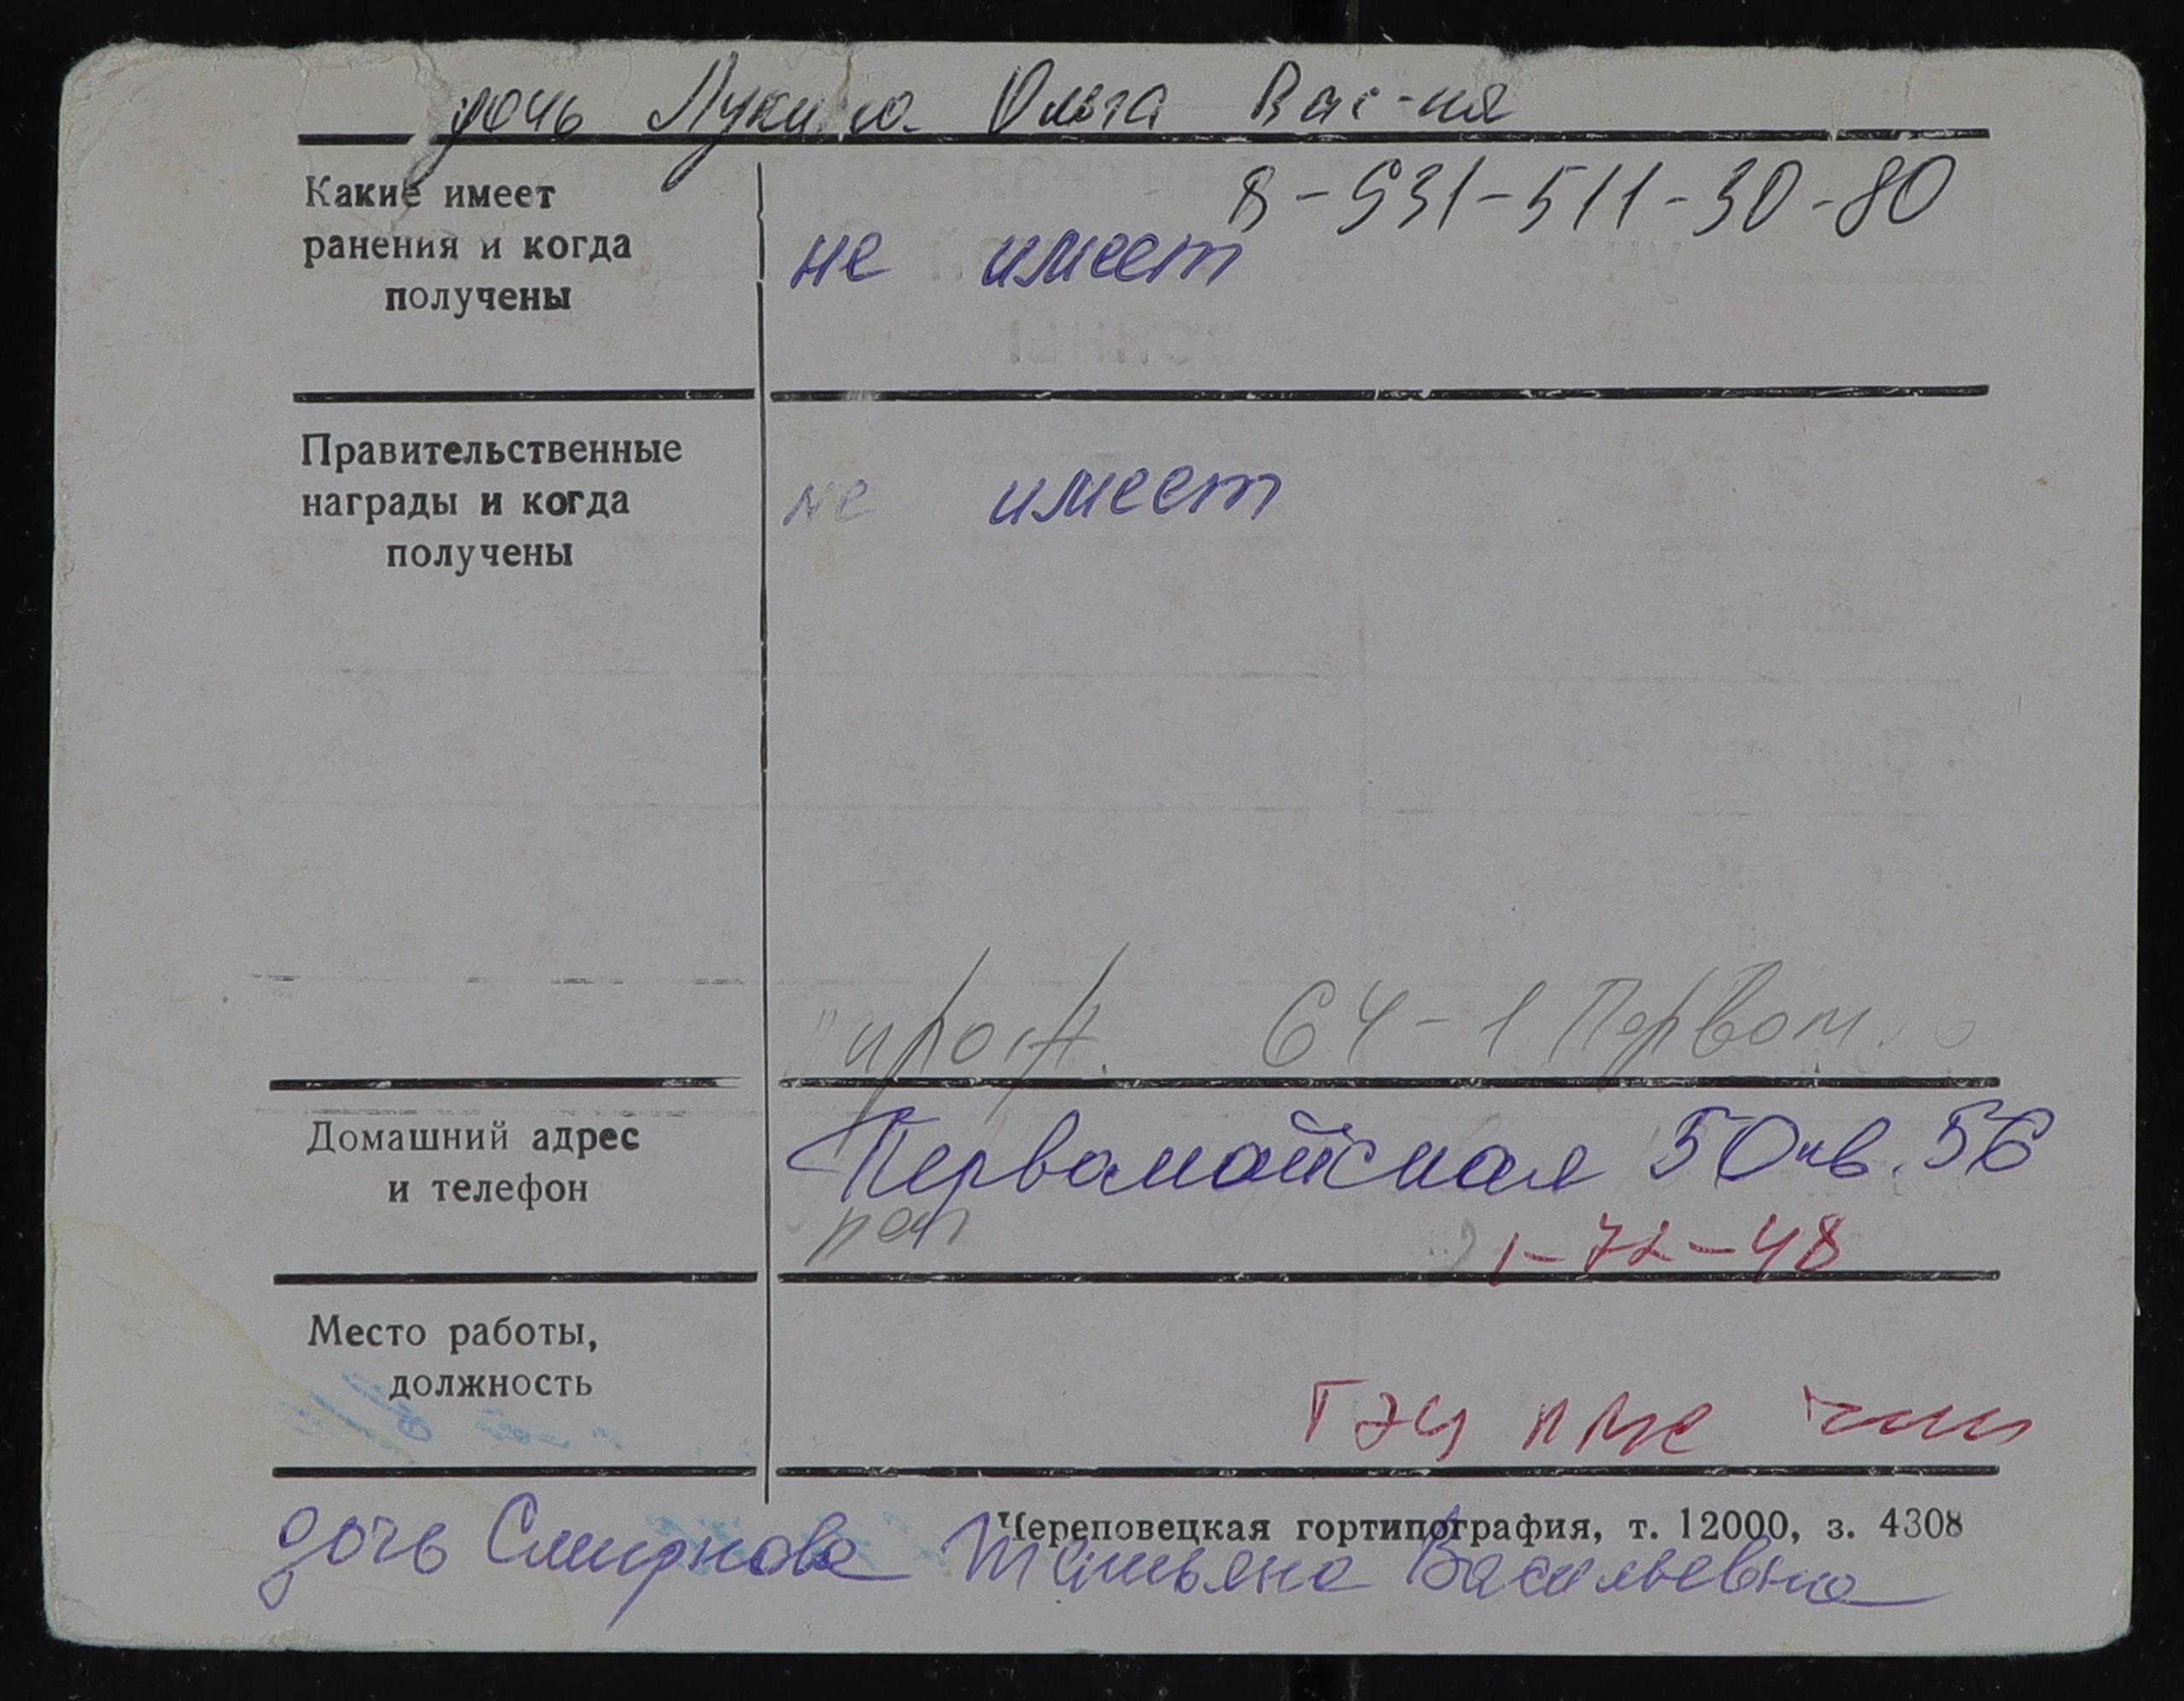 дочь Лукина Ольга Вас-на
8-931-511-30-80
Какие имеет
ранения и когда
получены
не имеет
Правительственные
награды и когда
получены
не имеет
64-1 Первом.
Домашний адрес
и телефон
Первомайская 50 кв. 56
1-72-48
Место работы,
должность
ТЭЦ ПВС
Череповецкая гортипография, т. 12000, з. 4308
дочь Смирнова Татьяна Васильевна